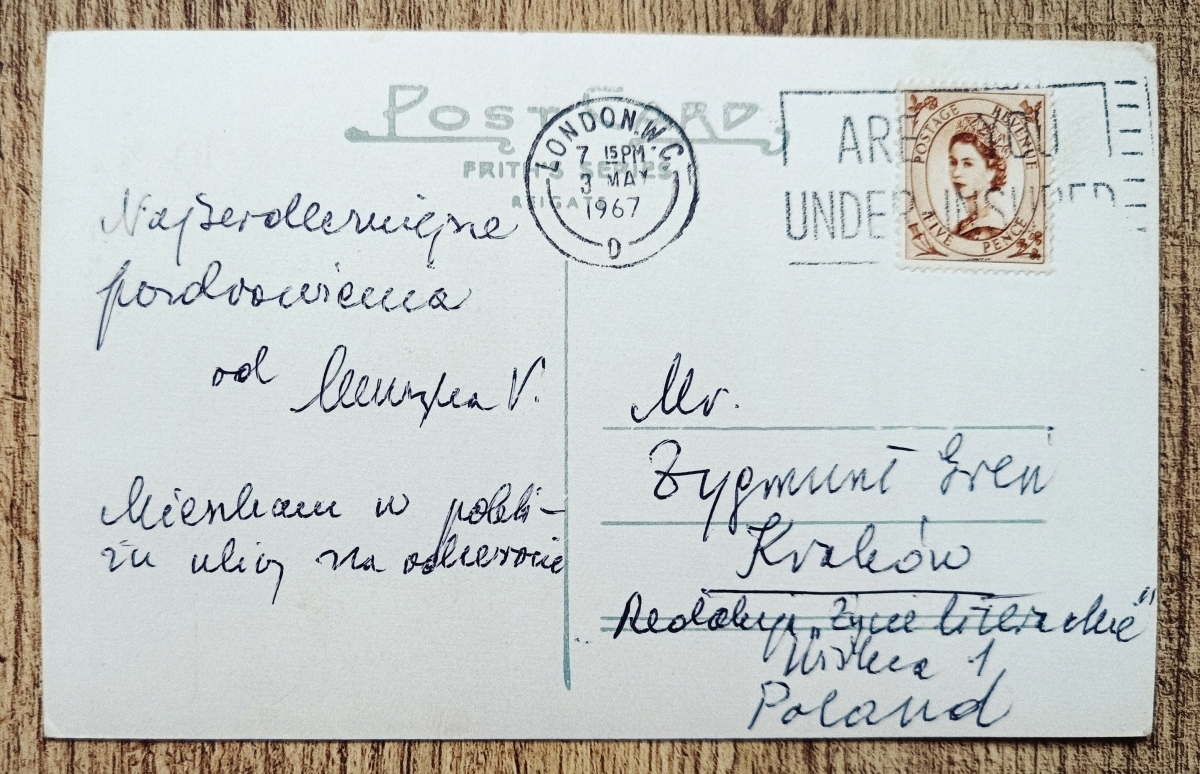 POST CARD
FRITH'S SERIES
REIGATE
LONDON. W.C.
7 15 PM
3 MAY
1967
D
ARE YOU
UNDER INSURED
POSTAGE REVENUE
FIVE PENCE
Najserdeczniejsze
pozdrowienia
od V.
Mieszkam w pobli-
żu ulicy na odwrocie
Mr.
Zygmunt Greń
Kraków
Redakcja „Życie Literackie"
Wiślna 1
Poland